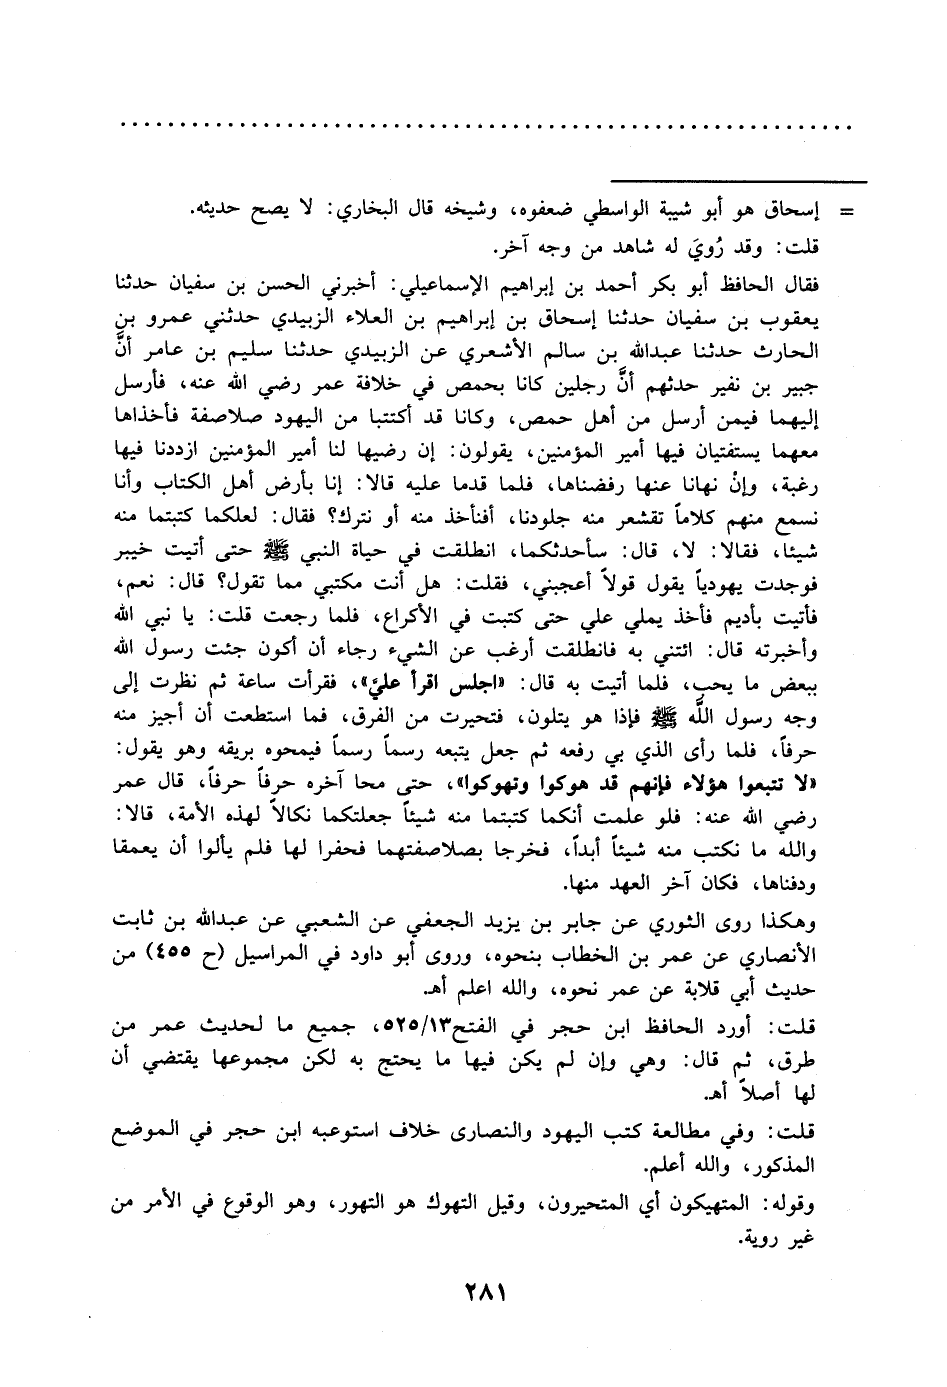 = إسحاق هو أبو شيبة الواسطي ضعفوه، وشيخه قال البخاري: لا يصح حديثه.
قلت: وقد رُويَ له شاهد من وجه آخر.
فقال الحافظ أبو بكر أحمد بن إبراهيم الإسماعيلي: أخبرني الحسن بن سفيان حدثنا
يعقوب بن سفيان حدثنا إسحاق بن إبراهيم بن العلاء الزبيدي حدثني عمرو بن
الحارث حدثنا عبدالله بن سالم الأشعري عن الزبيدي حدثنا سليم بن عامر أنَّ
جبير بن نفير حدثهم أنَّ رجلين كانا بحمص في خلافة عمر رضي الله عنه، فأرسل
إليهما فيمن أرسل من أهل حمص، وكانا قد أكتتبا من اليهود صلاصفة فأخذاها
معهما يستفتيان فيها أمير المؤمنين، يقولون: إن رضيها لنا أمير المؤمنين ازددنا فيها
رغبة، وإنْ نهانا عنها رفضناها، فلما قدما عليه قالا: إنا بأرض أهل الكتاب وأنا
نسمع منهم كلاماً تقشعر منه جلودنا، أفنأخذ منه أو نترك؟ فقال: لعلكما كتبتما منه
شيئا، فقالا: لا، قال: سأحدثكما، انطلقت في حياة النبي ﷺ حتى أتيت خيبر
فوجدت يهودياً يقول قولاً أعجبني، فقلت: هل أنت مكتبي مما تقول؟ قال: نعم،
فأتيت بأديم فأخذ يملي علي حتى كتبت في الأكراع، فلما رجعت قلت: يا نبي الله
وأخبرته قال: ائتني به فانطلقت أرغب عن الشيء رجاء أن أكون جئت رسول الله
ببعض ما يحب، فلما أتيت به قال: «اجلس اقرأ عليَّ»، فقرأت ساعة ثم نظرت إلى
وجه رسول اللَّه ﷺ فإذا هو يتلون، فتحيرت من الفرق، فما استطعت أن أجيز منه
حرفاً، فلما رأى الذي بي رفعه ثم جعل يتبعه رسماً رسماً فيمحوه بريقه وهو يقول:
«لا تتبعوا هؤلاء فإنهم قد هوكوا وتهوكوا»، حتى محا آخره حرفاً حرفاً، قال عمر
رضي الله عنه: فلو علمت أنكما كتبتما منه شيئاً جعلتكما نكالاً لهذه الأمة، قالا:
والله ما نكتب منه شيئاً أبداً، فخرجا بصلاصفتهما فحفرا لها فلم يألوا أن يعمقا
ودفناها، فكان آخر العهد منها.
وهكذا روى الثوري عن جابر بن يزيد الجعفي عن الشعبي عن عبدالله بن ثابت
الأنصاري عن عمر بن الخطاب بنحوه، وروى أبو داود في المراسيل (ح ٤٥٥) من
حديث أبي قلابة عن عمر نحوه، والله اعلم أهـ.
قلت: أورد الحافظ ابن حجر في الفتح١٣/٥٢٥، جميع ما لحديث عمر من
طرق، ثم قال: وهي وإن لم يكن فيها ما يحتج به لكن مجموعها يقتضي أن
لها أصلاً أهـ.
قلت: وفي مطالعة كتب اليهود والنصارى خلاف استوعبه ابن حجر في الموضع
المذكور، والله أعلم.
وقوله: المتهيكون أي المتحيرون، وقيل التهوك هو التهور، وهو الوقوع في الأمر من
غير روية.
٢٨١